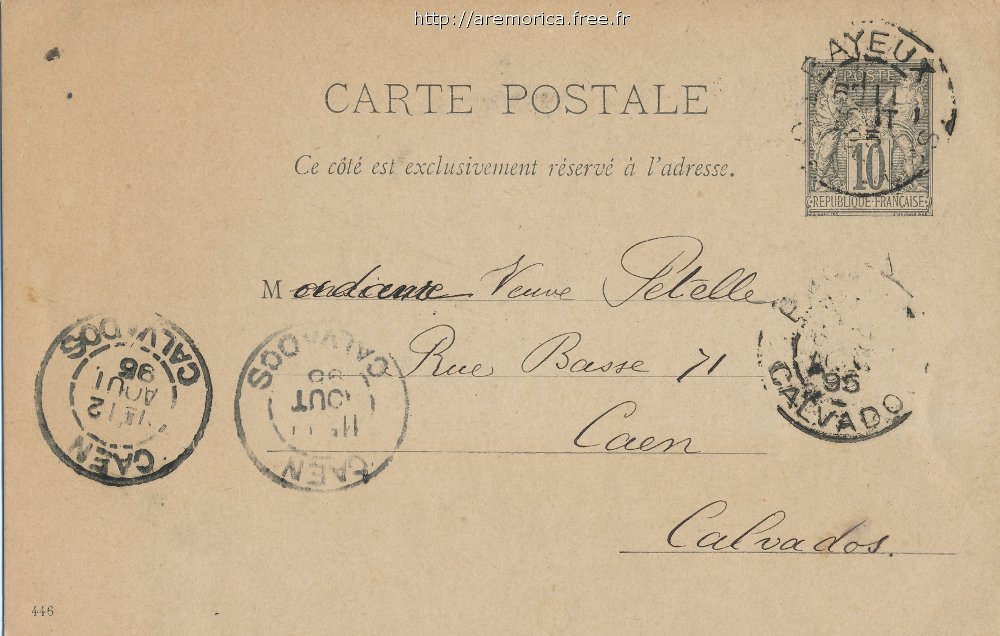 http://aremorica.free.fr
CARTE POSTALE
Ce côté est exclusivement réservé à l'adresse.
BAYEUX
POSTE
10
REPUBLIQUE FRANÇAISE
Madame Veuve Petelle
Rue Basse 71
Caen
Calvados.
CALVADOS
95
AOUT
12
CAEN
CALVADOS
95
AOUT
CAEN
95
CALVADO
446